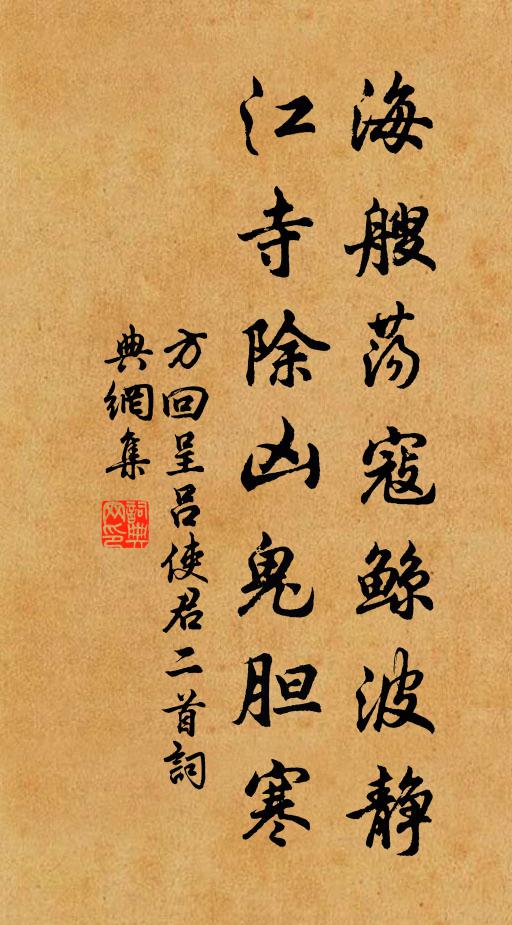 海艘荡寇鲸波静
江寺除凶鬼胆寒
方回呈吕使君二首詞
典網集
詞典
网印